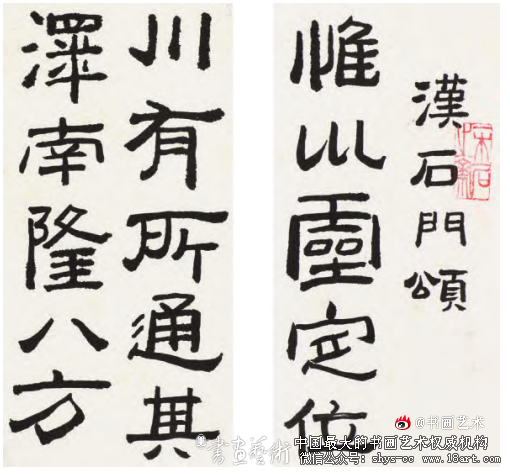 漢石門頌
惟巛靈定位
川有所通其
澤南隆八方
書畫藝術
@书画艺术
中国最大的书画艺术权威机构
微信公众号: shys-cc www.18art.com